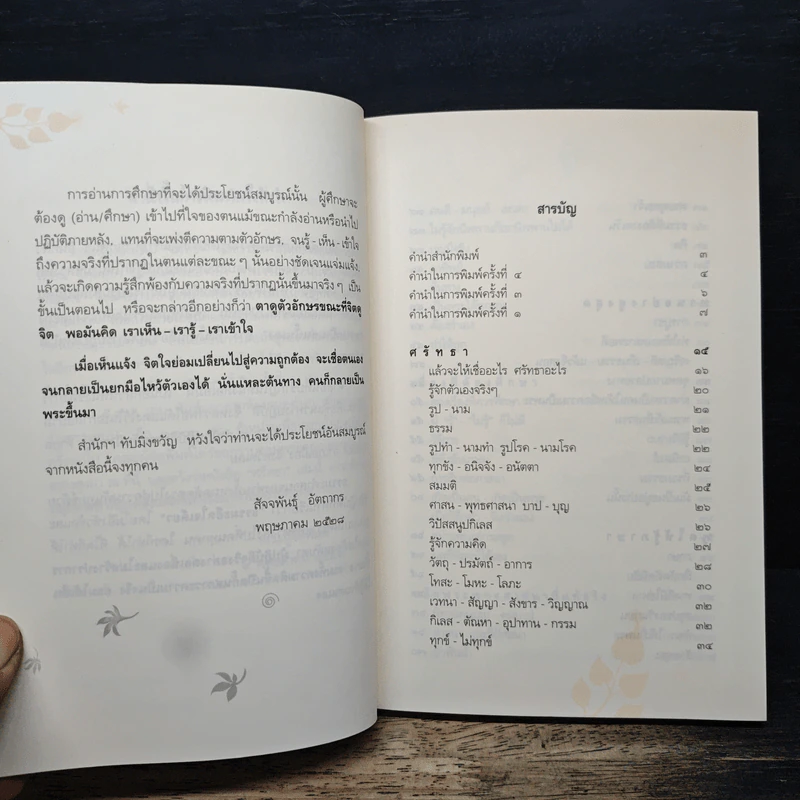 การอ่านการศึกษาที่จะได้ประโยชน์สมบูรณ์นั้น ผู้ศึกษาจะ
ต้องดู (อ่าน/ศึกษา) เข้าไปที่ใจของตนแม้ขณะกำลังอ่านหรือนำไป
ปฏิบัติภายหลัง, แทนที่จะเพ่งตีความตามตัวอักษร, จนรู้ - เห็น - เข้าใจ
ถึงความจริงที่ปรากฏในตนแต่ละขณะ ๆ นั้นอย่างชัดเจนแจ่มแจ้ง.
แล้วจะเกิดความรู้สึกพ้องกับความจริงที่ปรากฏนั้นขึ้นมาจริงๆ เป็น
ขั้นเป็นตอนไป หรือจะกล่าวอีกอย่างก็ว่า ตาดูตัวอักษรขณะที่จิตดู
จิต พอมันคิด เราเห็น – เรารู้ – เราเข้าใจ
เมื่อเห็นแจ้ง จิตใจย่อมเปลี่ยนไปสู่ความถูกต้อง จะเชื่อตนเอง
จนกลายเป็นยกมือไหว้ตัวเองได้ นั่นแหละต้นทาง คนก็กลายเป็น
พระขึ้นมา
สำนักฯ ทับมิ่งขวัญ หวังใจว่าท่านจะได้ประโยชน์อันสมบูรณ์
จากหนังสือนี้จงทุกคน
สัจจพันธุ์ อัตถากร
พฤษภาคม ๒๕๒๘
สารบัญ
คำนำสำนักพิมพ์ ๓
คำนำในการพิมพ์ครั้งที่ ๔ ๔
คำนำในการพิมพ์ครั้งที่ ๓ ๖
คำนำในการพิมพ์ครั้งที่ ๑ ๗
ศรัทธา ๑๕
แล้วจะให้เชื่ออะไร ศรัทธาอะไร ๑๖
รู้จักตัวเองจริงๆ ๒๐
รูป - นาม ๒๑
ธรรม ๒๒
รูปทำ - นามทำ รูปโรค - นามโรค ๒๒
ทุกขัง - อนิจจัง - อนัตตา ๒๔
สมมติ ๒๕
ศาสน - พุทธศาสนา บาป - บุญ ๒๖
วิปัสสนูปกิเลส ๒๖
รู้จักความคิด ๒๗
วัตถุ - ปรมัตถ์ - อาการ ๒๘
โทสะ - โมหะ - โลภะ ๓๐
เวทนา - สัญญา - สังขาร - วิญญาณ ๓๒
กิเลส - ตัณหา - อุปาทาน - กรรม ๓๒
ทุกข์ - ไม่ทุกข์ ๓๔